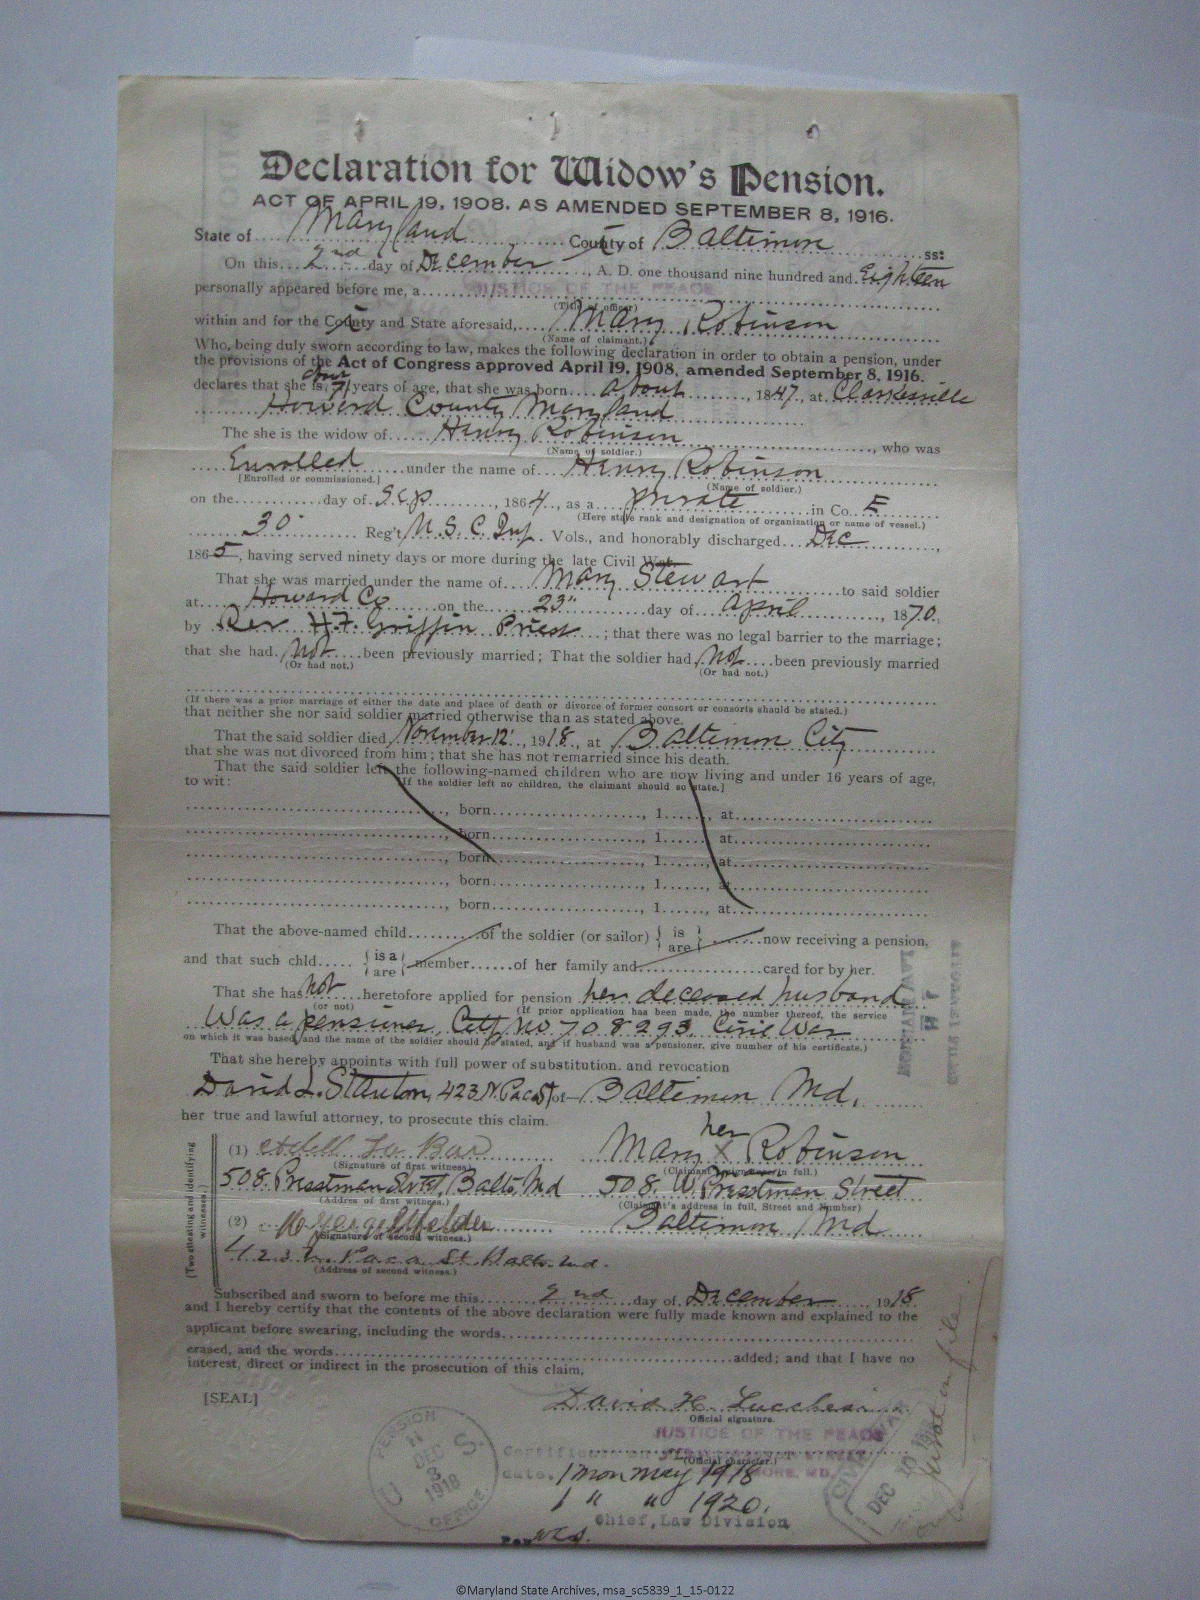 Declaration for Widow's Pension.
ACT OF APRIL 19, 1908. AS AMENDED SEPTEMBER 8, 1916.
State of Maryland County of Baltimore ss:
On this 2nd day of December, A. D. one thousand nine hundred and Eighteen
personally appeared before me, a JUSTICE OF THE PEACE
(Title of officer)
within and for the County and State aforesaid, Mary Robinson
(Name of claimant.)
Who, being duly sworn according to law, makes the following declaration in order to obtain a pension, under
the provisions of the Act of Congress approved April 19, 1908, amended September 8, 1916.
declares that she is 71 years of age, that she was born about, 1847, at Clarksville
Howard County Maryland
The she is the widow of Henry Robinson, who was
(Name of soldier.)
Enrolled under the name of Henry Robinson
[Enrolled or commissioned.] (Name of soldier.)
on the day of Sep, 1864, as a private in Co. E
(Here state rank and designation of organization or name of vessel.)
30 Reg't U. S. C. Inf. Vols., and honorably discharged Dec,
1865, having served ninety days or more during the late Civil War.
That she was married under the name of Mary Stewart to said soldier
at Howard Co on the 23" day of April, 1870,
by Rev H. F. Griffin Priest; that there was no legal barrier to the marriage;
that she had not been previously married; That the soldier had not been previously married
(Or had not.) (Or had not.)
(If there was a prior marriage of either the date and place of death or divorce of former consort or consorts should be stated.)
that neither she nor said soldier married otherwise than as stated above.
That the said soldier died November 12, 1918, at Baltimore City
that she was not divorced from him; that she has not remarried since his death.
That the said soldier left the following-named children who are now living and under 16 years of age,
to wit: [If the soldier left no children, the claimant should so state.]
, born, 1, at
, born, 1, at
, born, 1, at
, born, 1, at
, born, 1, at
That the above-named child of the soldier (or sailor) { is are } now receiving a pension,
and that such chld { is a are { member of her family and cared for by her.
That she has not heretofore applied for pension her deceased husband
(or not) (If prior application has been made, the number thereof, the service
Was a pensioner, Ctf, No 708293, Civil War
on which it was based, and the name of the soldier should be stated, and if husband was a pensioner, give number of his certificate.)
That she hereby appoints with full power of substitution. and revocation
David L. Stanton, 423 N. Paca St of Baltimore Md.
her true and lawful attorney, to prosecute this claim.
(Two attesting and identifying witnesses.)
her
(1) Mary X Robinson
(Signature of first witness) (Claimant's signature in full.)
508 Presstman Street, Balto Md 508 W. Presstman Street
(Address of first witness.) (Claimant's address in full, Street and Number)
(2) Baltimore, Md
(Signature of second witness.)
423 N. Paca St. Balto. Md.
(Address of second witness.)
Subscribed and sworn to before me this 2nd day of December, 1918
and I hereby certify that the contents of the above declaration were fully made known and explained to the
applicant before swearing, including the words
erased, and the words added; and that I have no
interest, direct or indirect in the prosecution of this claim,
[SEAL] David H. Lucchesi
Official signature.
JUSTICE OF THE PEACE
(Official character.)
date. 1 mon may 1918
1 " " 1920.
Chief, Law Division
U S PENSION OFFICE DEC 3 1918
CIVIL WAR DEC 10
LAW DIVISION
©Maryland State Archives, msa_sc5839_1_15-0122